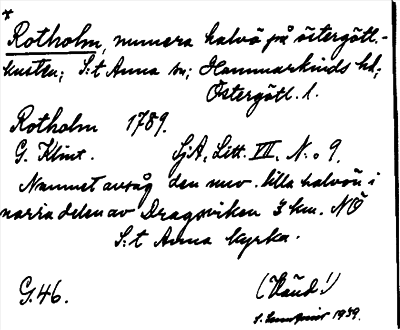 *
Rotholm, numera halvö på östergötl.-
kusten; S:t Anna sn; Hammarkinds hd;
Östergötl. l.
Rotholm 1789.
G. Klint. SjA, Litt. VII, N:o 9.
Namnet avsåg den nuv. lilla halvön i
norra delen av Dragsviken 3 km. NÖ
S:t Anna kyrka.
G. 46. (Vänd!)
1939.